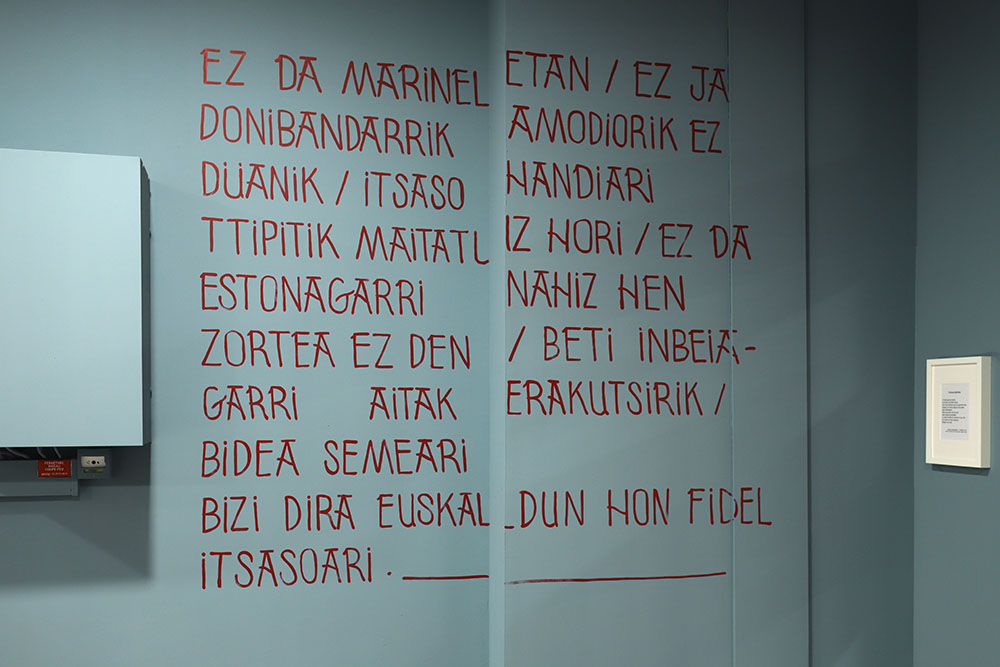 EZ DA MARINEL ETAN / EZ JA
DONiBANDARRiK AMODiORiK EZ
DÜANiK / iTSASO HANDiARi
TTiPiTiK MAiTATU iZ HORi / EZ DA
ESTONAGARRi NAHiZ HEN
ZORTEA EZ DEN / BETi iNBEiA-
GARRi AiTAK ERAKUTSiRiK /
BiDEA SEMEARi
BiZi DiRA EUSKALDUN HON FiDEL
iTSASOARi.